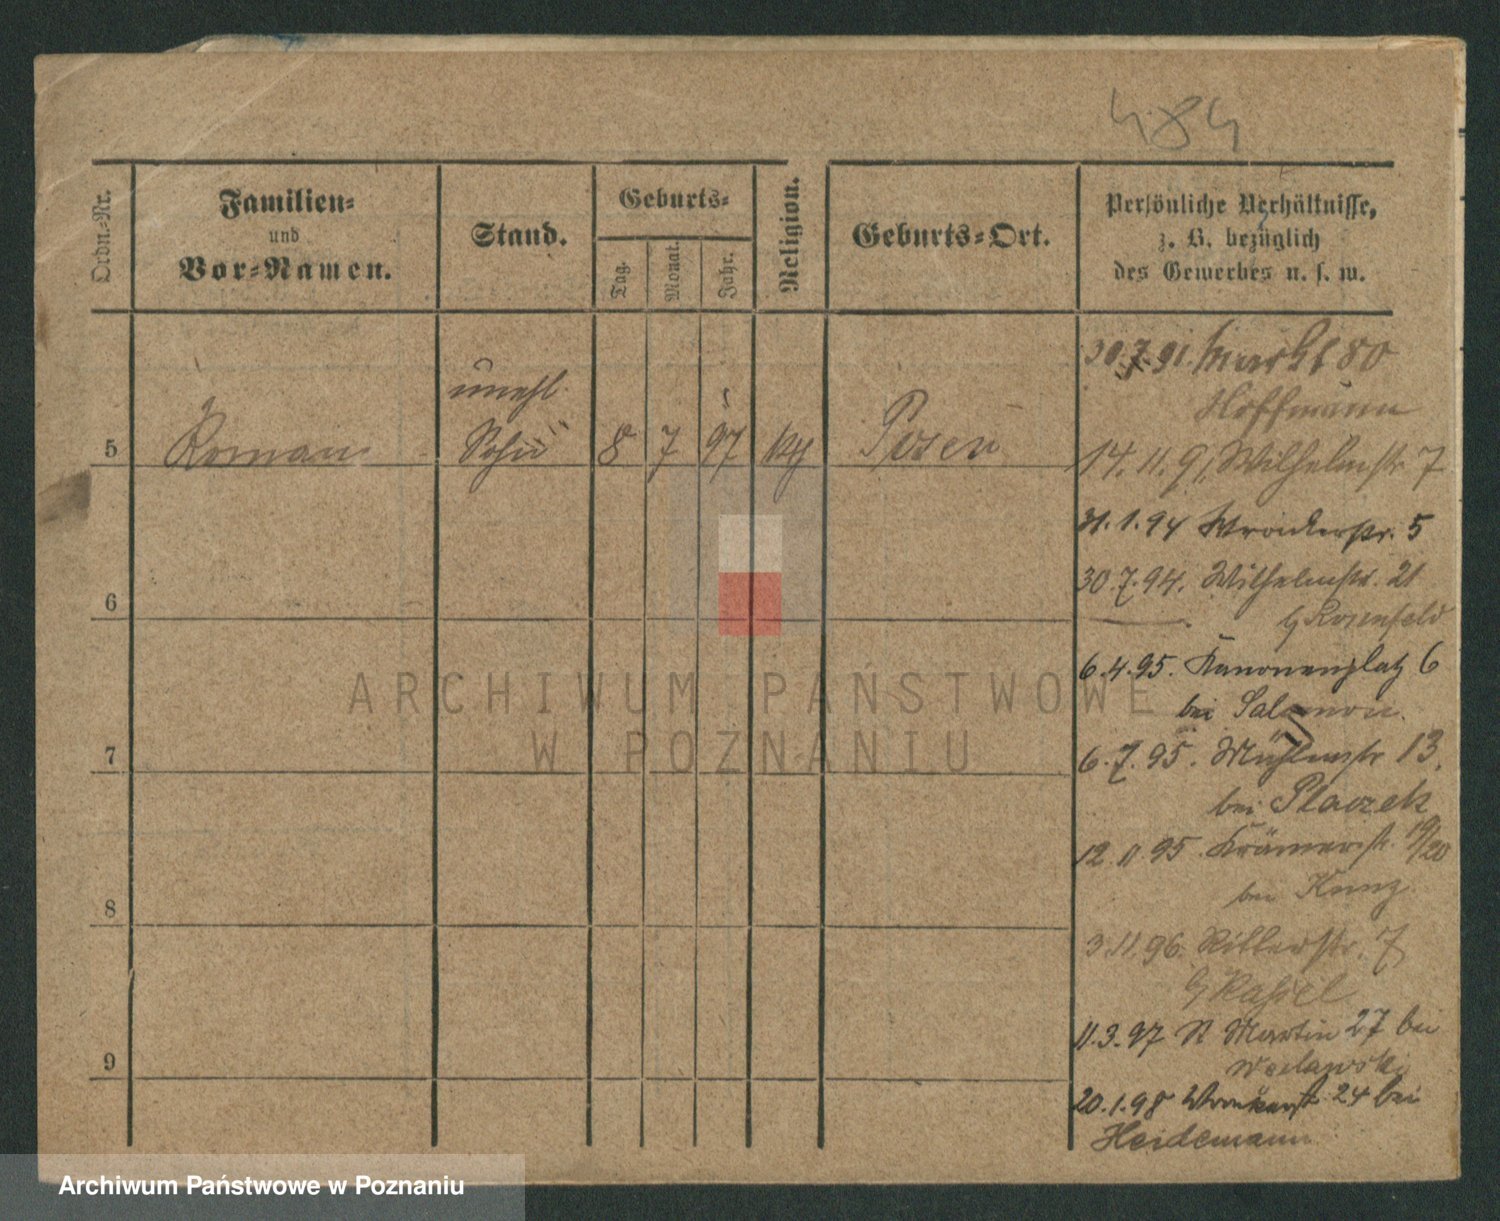 484
Ordn.-Nr.
Familien-
und
Vor-Namen.
Stand.
Geburts-
Tag.
Monat.
Jahr.
Religion.
Geburts-Ort.
Persönliche Verhältnisse,
z. B. bezüglich
des Gewerbes u. s. w.
30.7.91. Markt 80
Hoffmann
unehl.
5 Roman Sohn 8 7 97 kg Posen
14.11.91 Wilhelmstr 7
31.1.94 Wronkerstr. 5
30.7.94. Wilhelmstr. 21
b/ Rosenfeld
6
6.4.95. Kanonenplatz 6
bei Salomon.
7
6.7.95. Mühlenstr 13.
bei Placzek
12.11 95. Krämerstr. 19/20
bei Kunz
8
3.11.96. Ritterstr. 7
b/
11.3.97 St Martin 27 bei
Weclawski
9
20.1.98 Wronkerstr 24 bei
Heidemann
ARCHIWUM PAŃSTWOWE
W POZNANIU
Archiwum Państwowe w Poznaniu